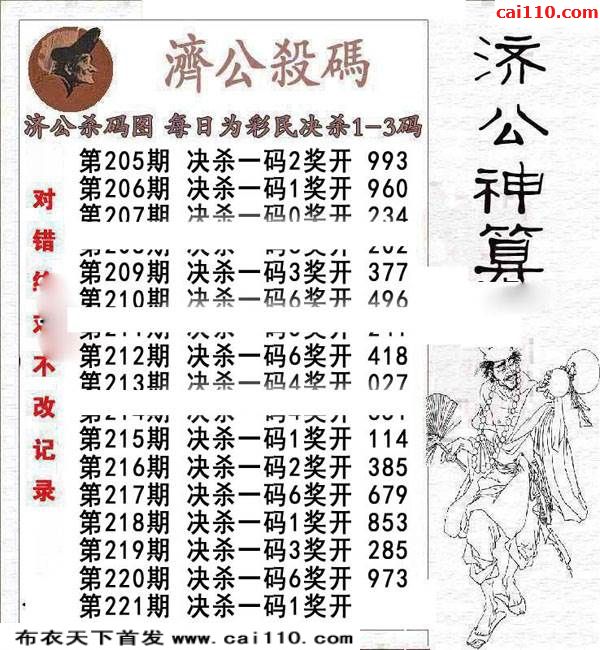 cai110.com
濟公殺碼
济公杀码图 每日为彩民决杀1-3码
第205期 决杀一码2奖开 993
第206期 决杀一码1奖开 960
第207期 决杀一码0奖开 234
第209期 决杀一码3奖开 377
第210期 决杀一码6奖开 496
第212期 决杀一码6奖开 418
第213期 决杀一码4奖开 027
第215期 决杀一码1奖开 114
第216期 决杀一码2奖开 385
第217期 决杀一码6奖开 679
第218期 决杀一码1奖开 853
第219期 决杀一码3奖开 285
第220期 决杀一码6奖开 973
第221期 决杀一码1奖开
对错
不改记录
济公神算
布衣天下首发 www.cai110.com